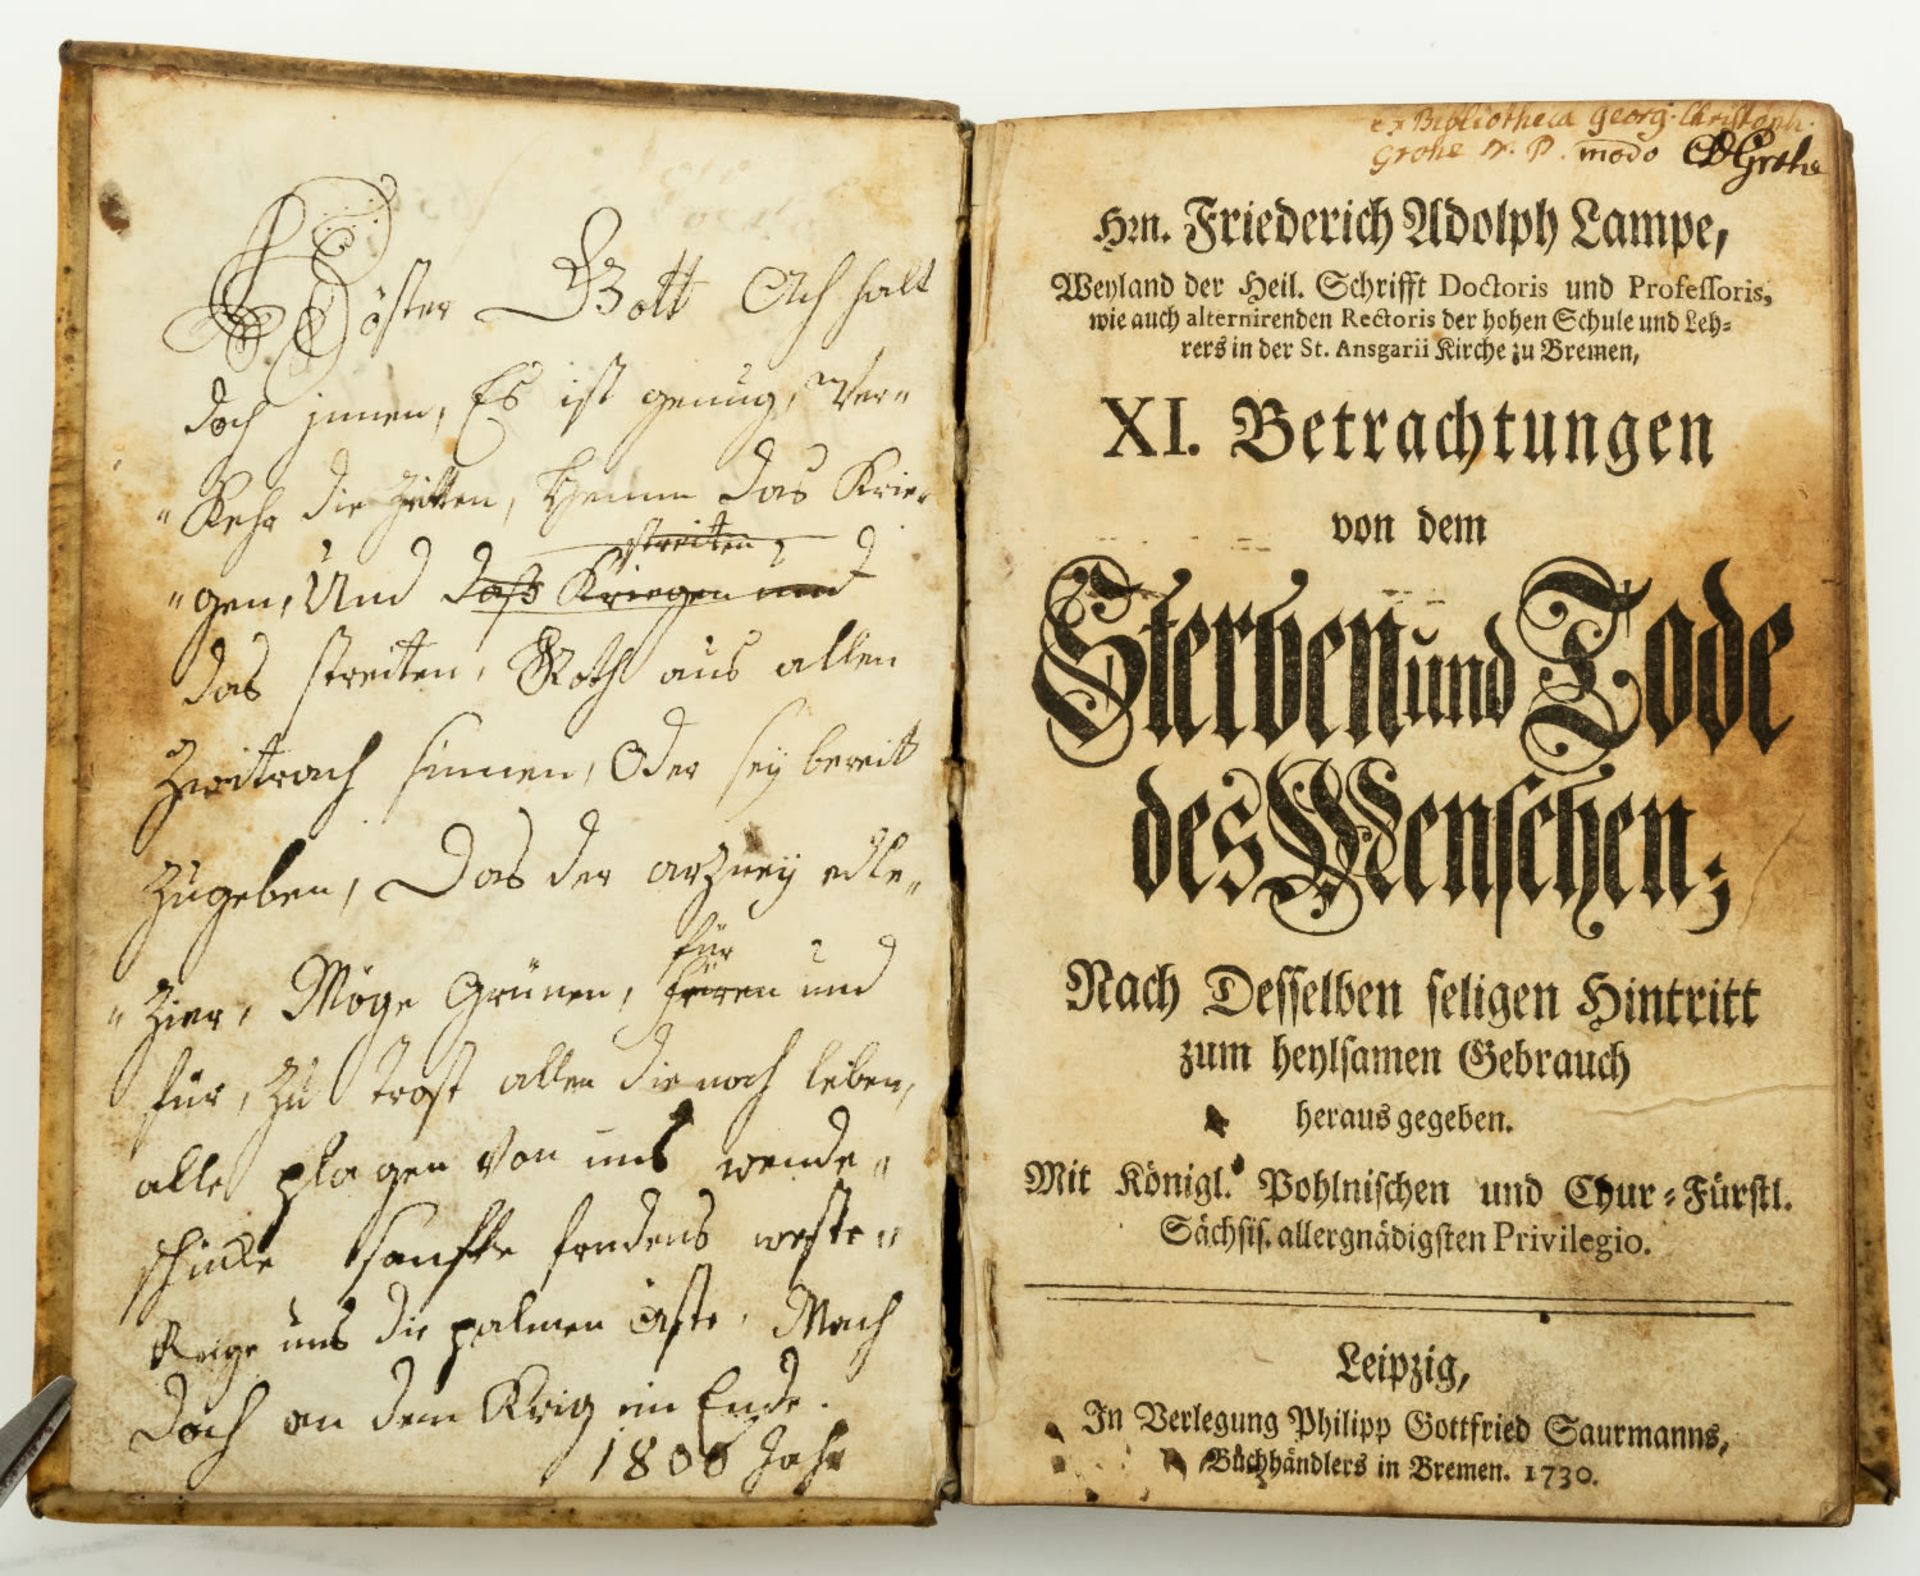 Gott Ach halt
doch jnnen, Es ist genug, Ver„
„Kehr die Zeitten, Hemm das Krie„
streiten
„gen, Und daß Kriegen und
das streiten, Roth aus allen
Zweitrach sinnen, Oder sey bereitt
Zugeben, Das der arzney edle„
für
„Zier, Möge Grünen, und
für, Zu Trost allen die noch leben,
alle plagen Von uns wende„
schicke sanffte westе„
uns die palmen äste, Mach
Doch an dem Krig ein Ende.
1806 Jahr
ex Bibliotheca Georg. Christoph.
Grohe P. modo Grohe
Hrn. Friederich Adolph Lampe,
Weyland der Heil. Schrifft Doctoris und Professoris,
wie auch alternirenden Rectoris der hohen Schule und Leh-
rers in der St. Ansgarii Kirche zu Bremen,
XI. Betrachtungen
von dem
Sterben und Tode
des Menschen;
Nach Desselben seligen Hintritt
zum heylsamen Gebrauch
heraus gegeben.
Mit Königl. Pohlnischen und Chur-Fürstl.
Sächsis. allergnädigsten Privilegio.
Leipzig,
In Verlegung Philipp Gottfried Saurmanns,
Buchhändlers in Bremen. 1730.